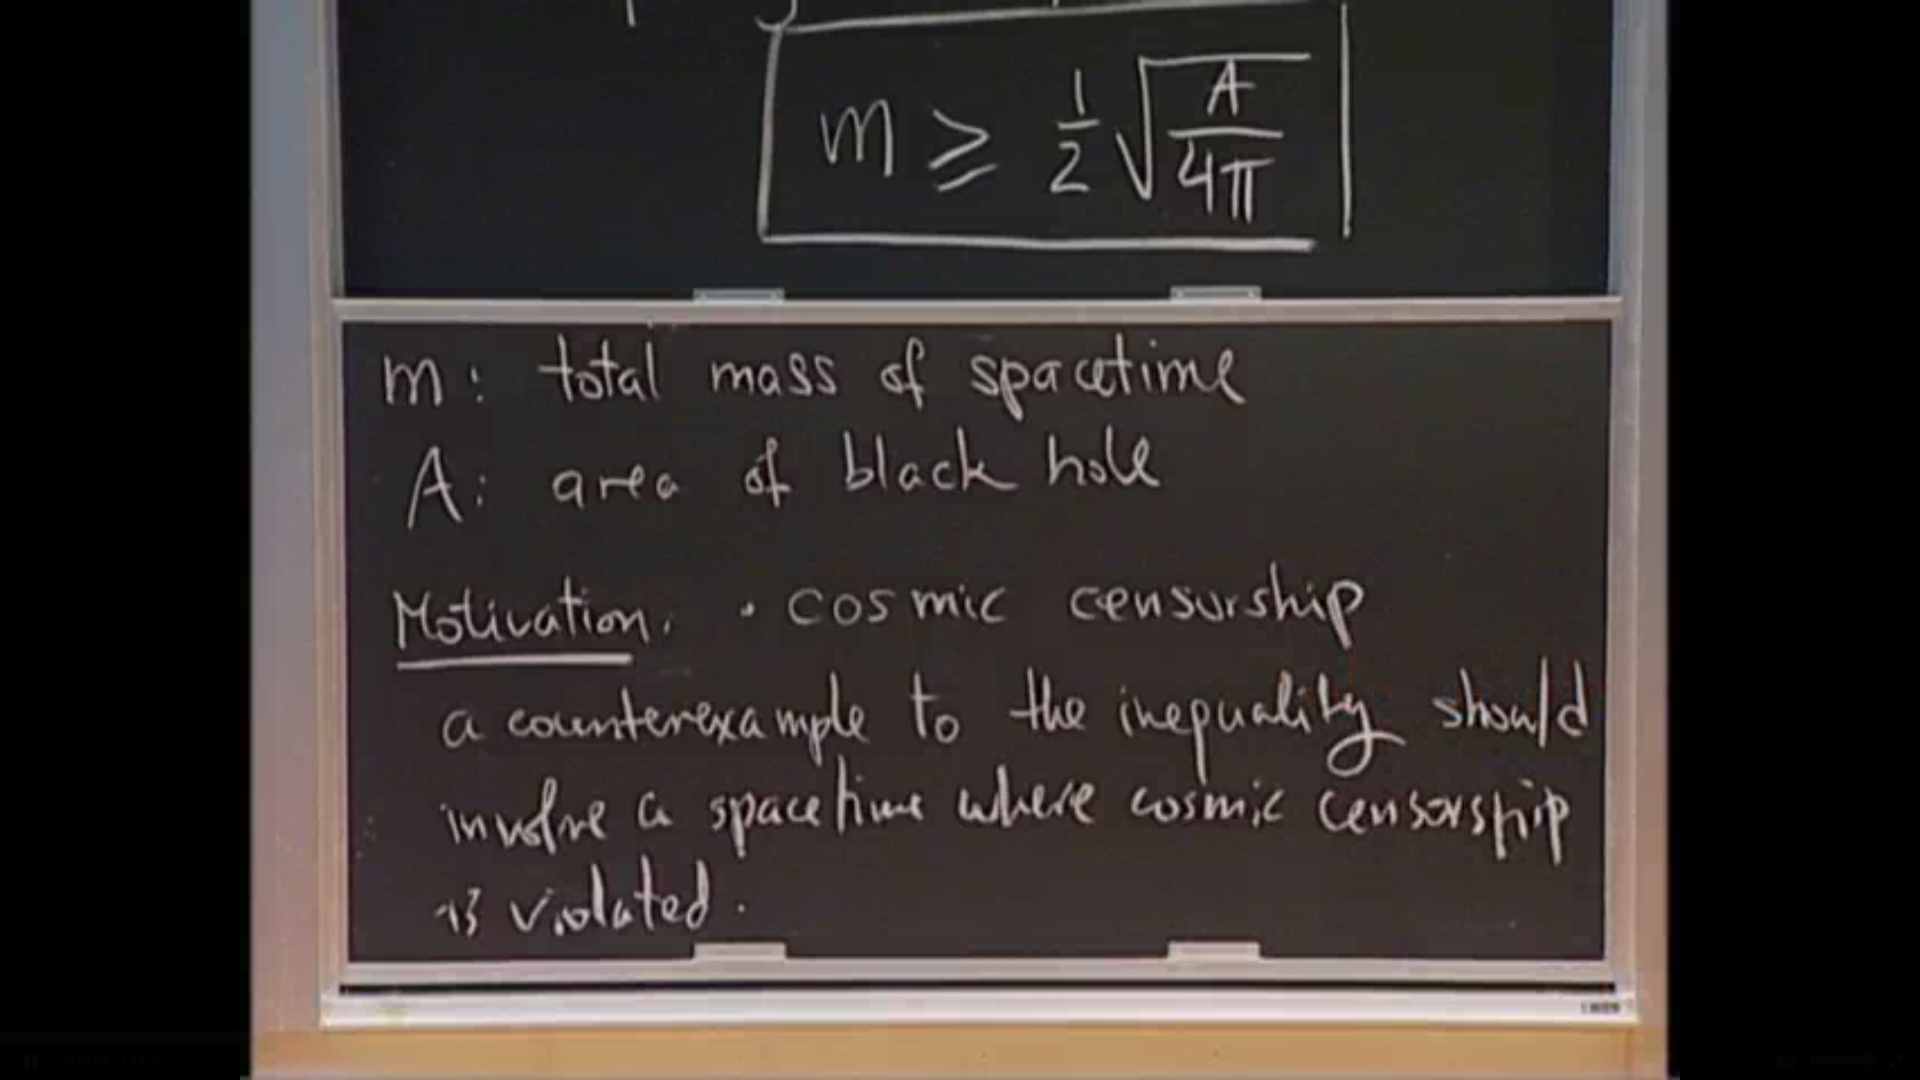 m ≥ 1/2 √(A/4π)
m: total mass of spacetime
A: area of black hole
Motivation. · cosmic censurship
a counterexample to the inequality should
involve a spacetime where cosmic censorship
is violated.